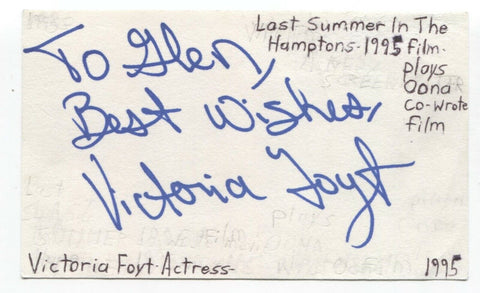 Last Summer In The
Hamptons-1995 Film-
plays
Oona
Co-wrote
Film
To Glen,
Best Wishes,
Victoria Foyt
Victoria Foyt-Actress-
1995